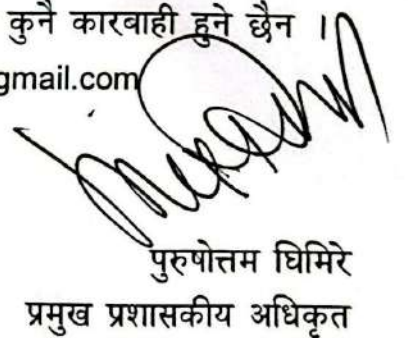 कुनै कारबाही हुने छैन ।
gmail.com
पुरुषोत्तम घिमिरे
प्रमुख प्रशासकीय अधिकृत